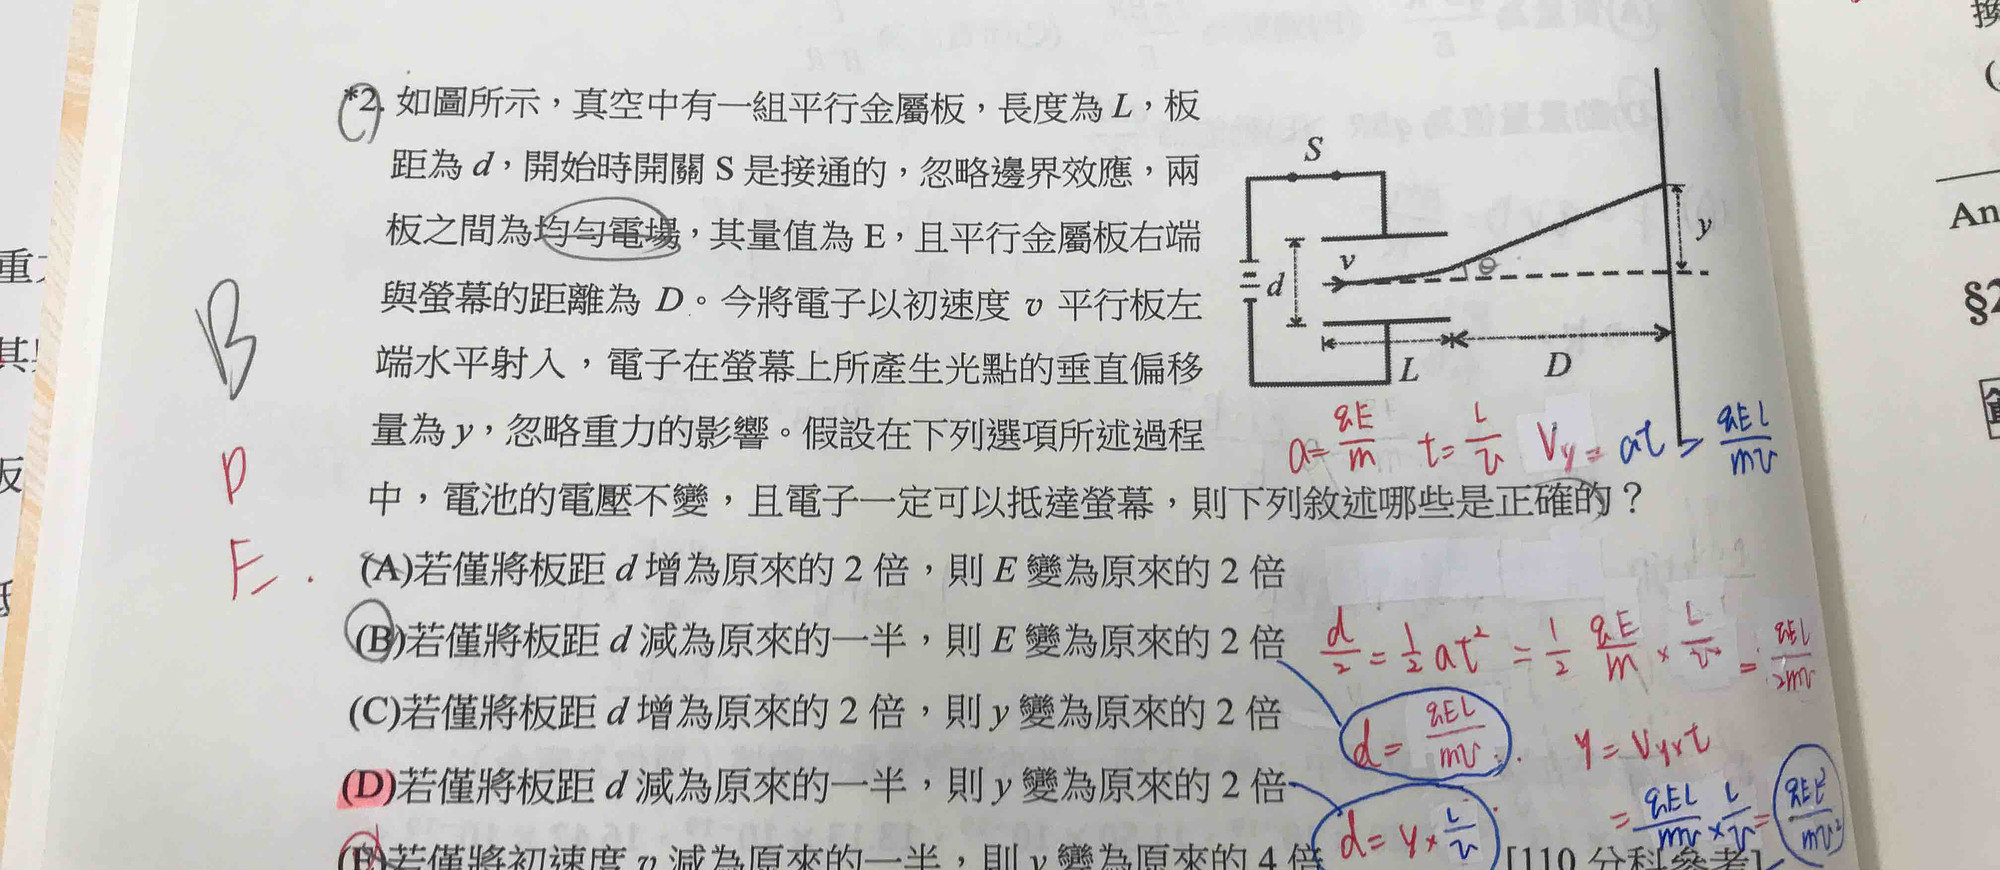 *2. 如圖所示，真空中有一組平行金屬板，長度為 L，板
距為 d，開始時開關 S 是接通的，忽略邊界效應，兩
板之間為均勻電場，其量值為 E，且平行金屬板右端
與螢幕的距離為 D。今將電子以初速度 v 平行板左
端水平射入，電子在螢幕上所產生光點的垂直偏移
量為 y，忽略重力的影響。假設在下列選項所述過程
中，電池的電壓不變，且電子一定可以抵達螢幕，則下列敘述哪些是正確的？
(A)若僅將板距 d 增為原來的 2 倍，則 E 變為原來的 2 倍
(B)若僅將板距 d 減為原來的一半，則 E 變為原來的 2 倍
(C)若僅將板距 d 增為原來的 2 倍，則 y 變為原來的 2 倍
(D)若僅將板距 d 減為原來的一半，則 y 變為原來的 2 倍
(E)若僅將初速度 v 減為原來的一半，則 y 變為原來的 4 倍
[110 分科參考]
S
v
θ
y
d
L
D
B
D
E.
a=qE/m t=L/v Vy=at=qEL/mv
d/2=1/2at²=1/2 qE/m×L/v=qEL/2mv
d=qEL/mv
y=Vy×t
=qEL/mv×L/v=
d=y×L/v
An
§2
換
重
其
反